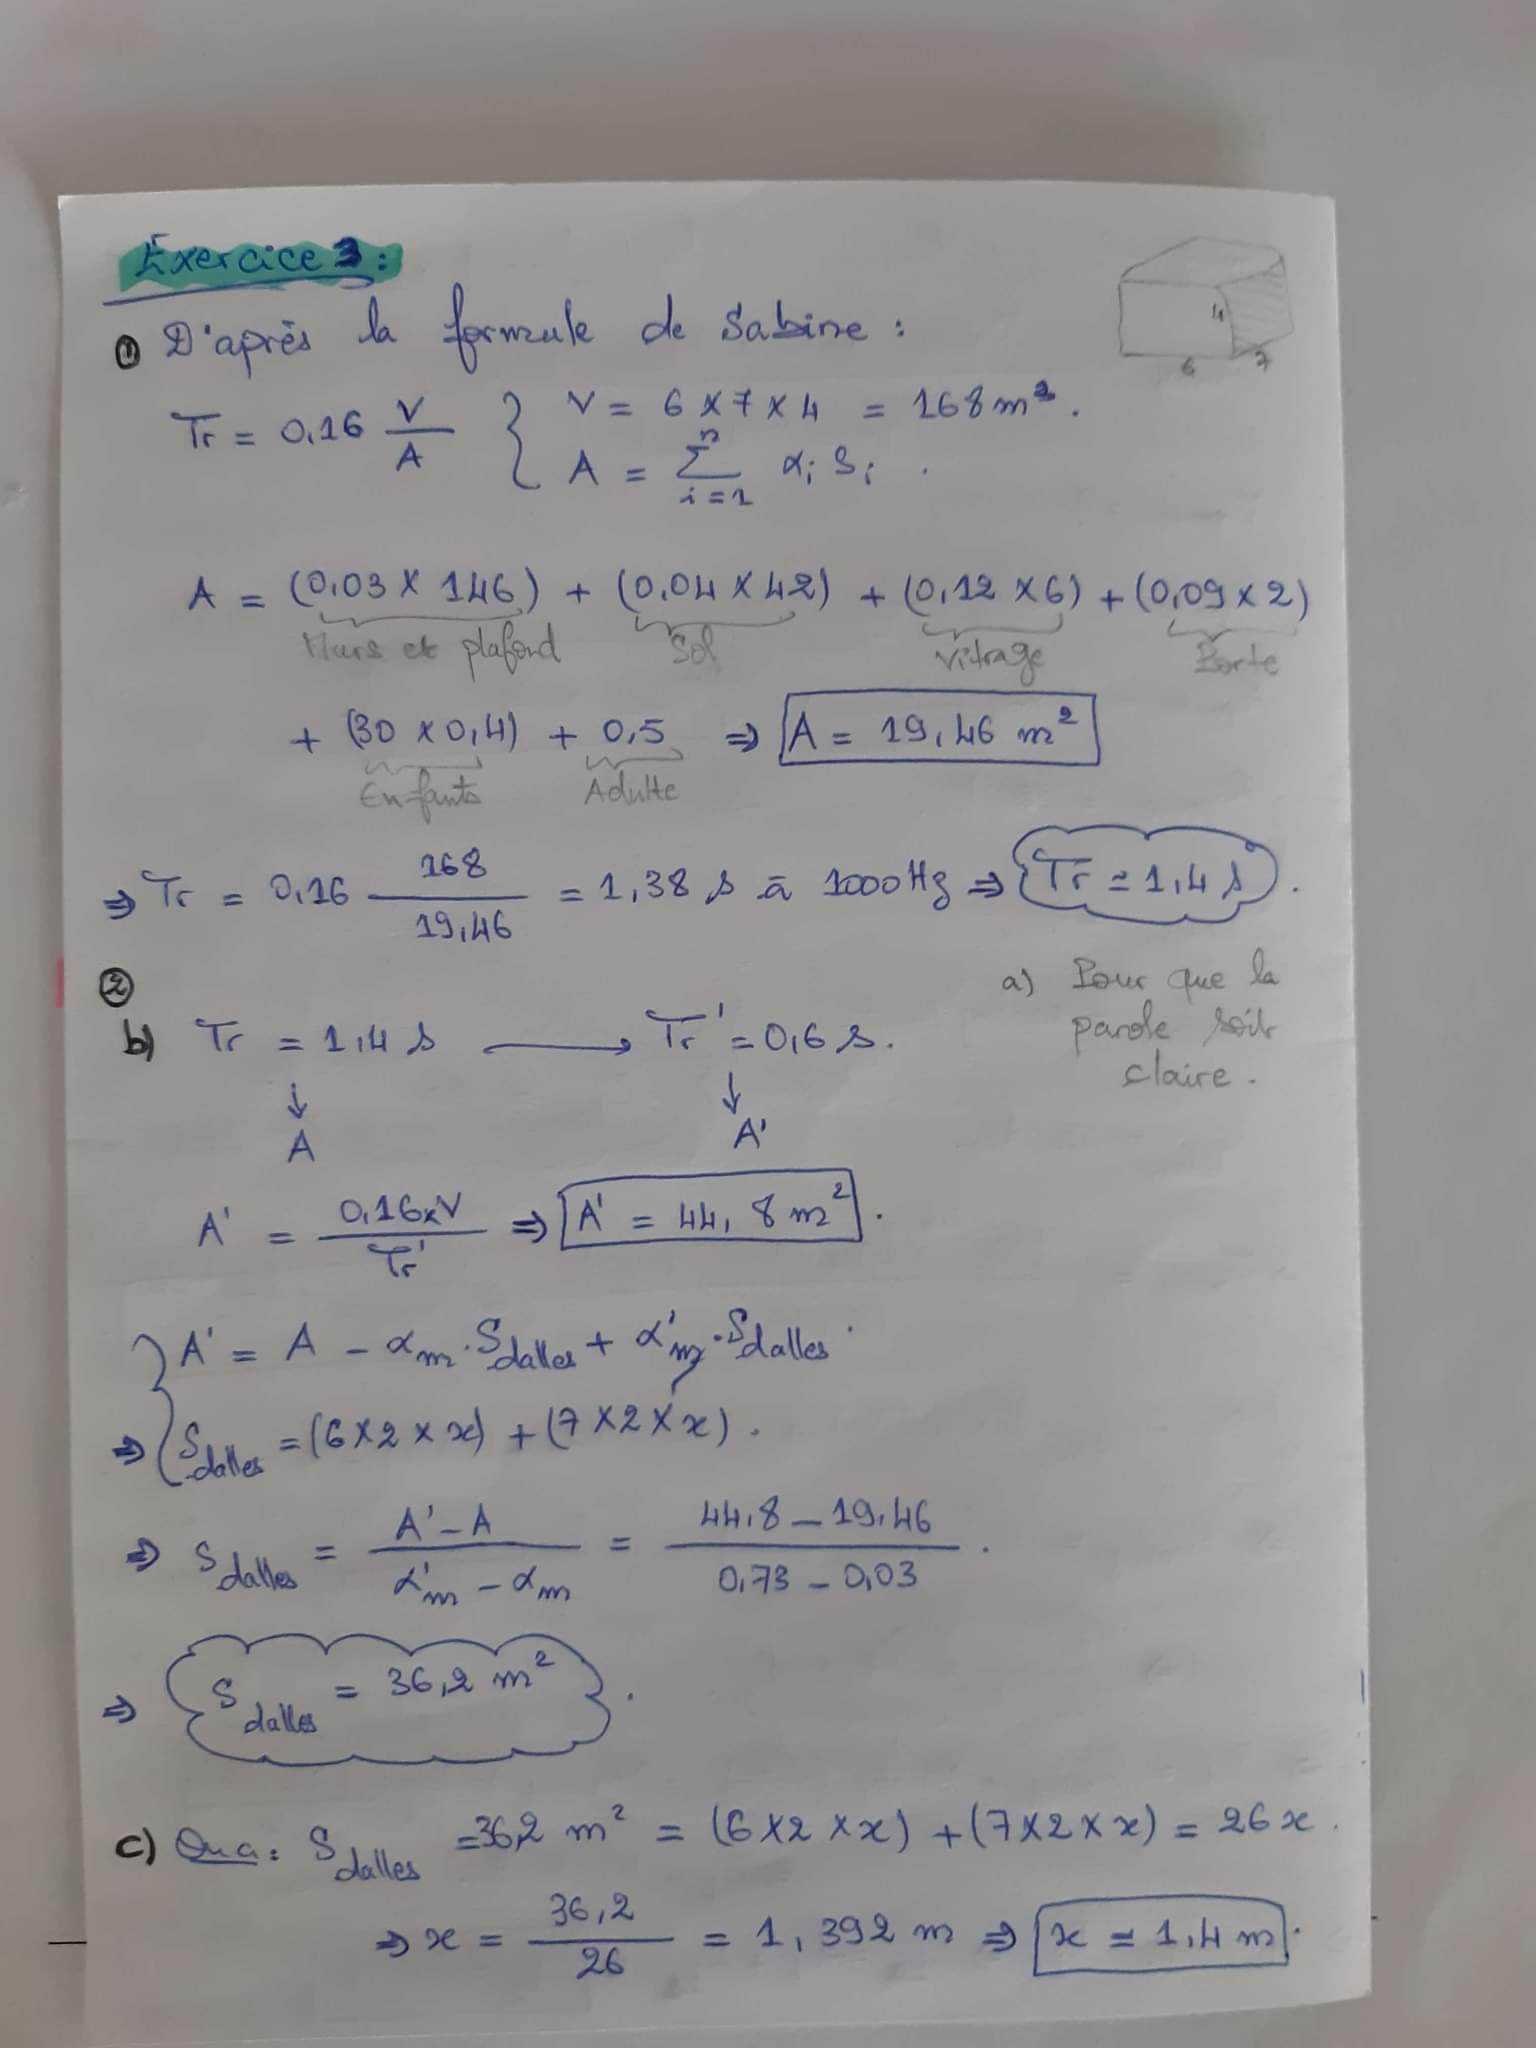 Exercice 3 :
① D'après la formule de Sabine :
4
6
7
Tr = 0,16 V/A { V = 6 x 7 x 4 = 168 m³.
A = Σ αi Si .
n
i=1
A = (0,03 x 146) + (0,04 x 42) + (0,12 x 6) + (0,09 x 2)
Murs et plafond Sol vitrage Porte
+ (30 x 0,4) + 0,5 ⇒ A = 19,46 m²
Enfants Adulte
⇒ Tr = 0,16 168/19,46 = 1,38 s à 1000 Hz ⇒ Tr = 1,4 s .
②
a) Pour que la
parole soit
claire .
b) Tr = 1,4 s → Tr' = 0,6 s.
↓ ↓
A A'
A' = 0,16xV/Tr' ⇒ A' = 44,8 m² .
{ A' = A - αm . Sdalles + α'm . Sdalles .
⇒ Sdalles = (6 x 2 x x) + (7 x 2 x x) .
⇒ Sdalles = A' - A/α'm - αm = 44,8 - 19,46/0,73 - 0,03 .
⇒ Sdalles = 36,2 m² .
c) On a : Sdalles = 36,2 m² = (6 x 2 x x) + (7 x 2 x x) = 26 x .
⇒ x = 36,2/26 = 1,392 m ⇒ x = 1,4 m .